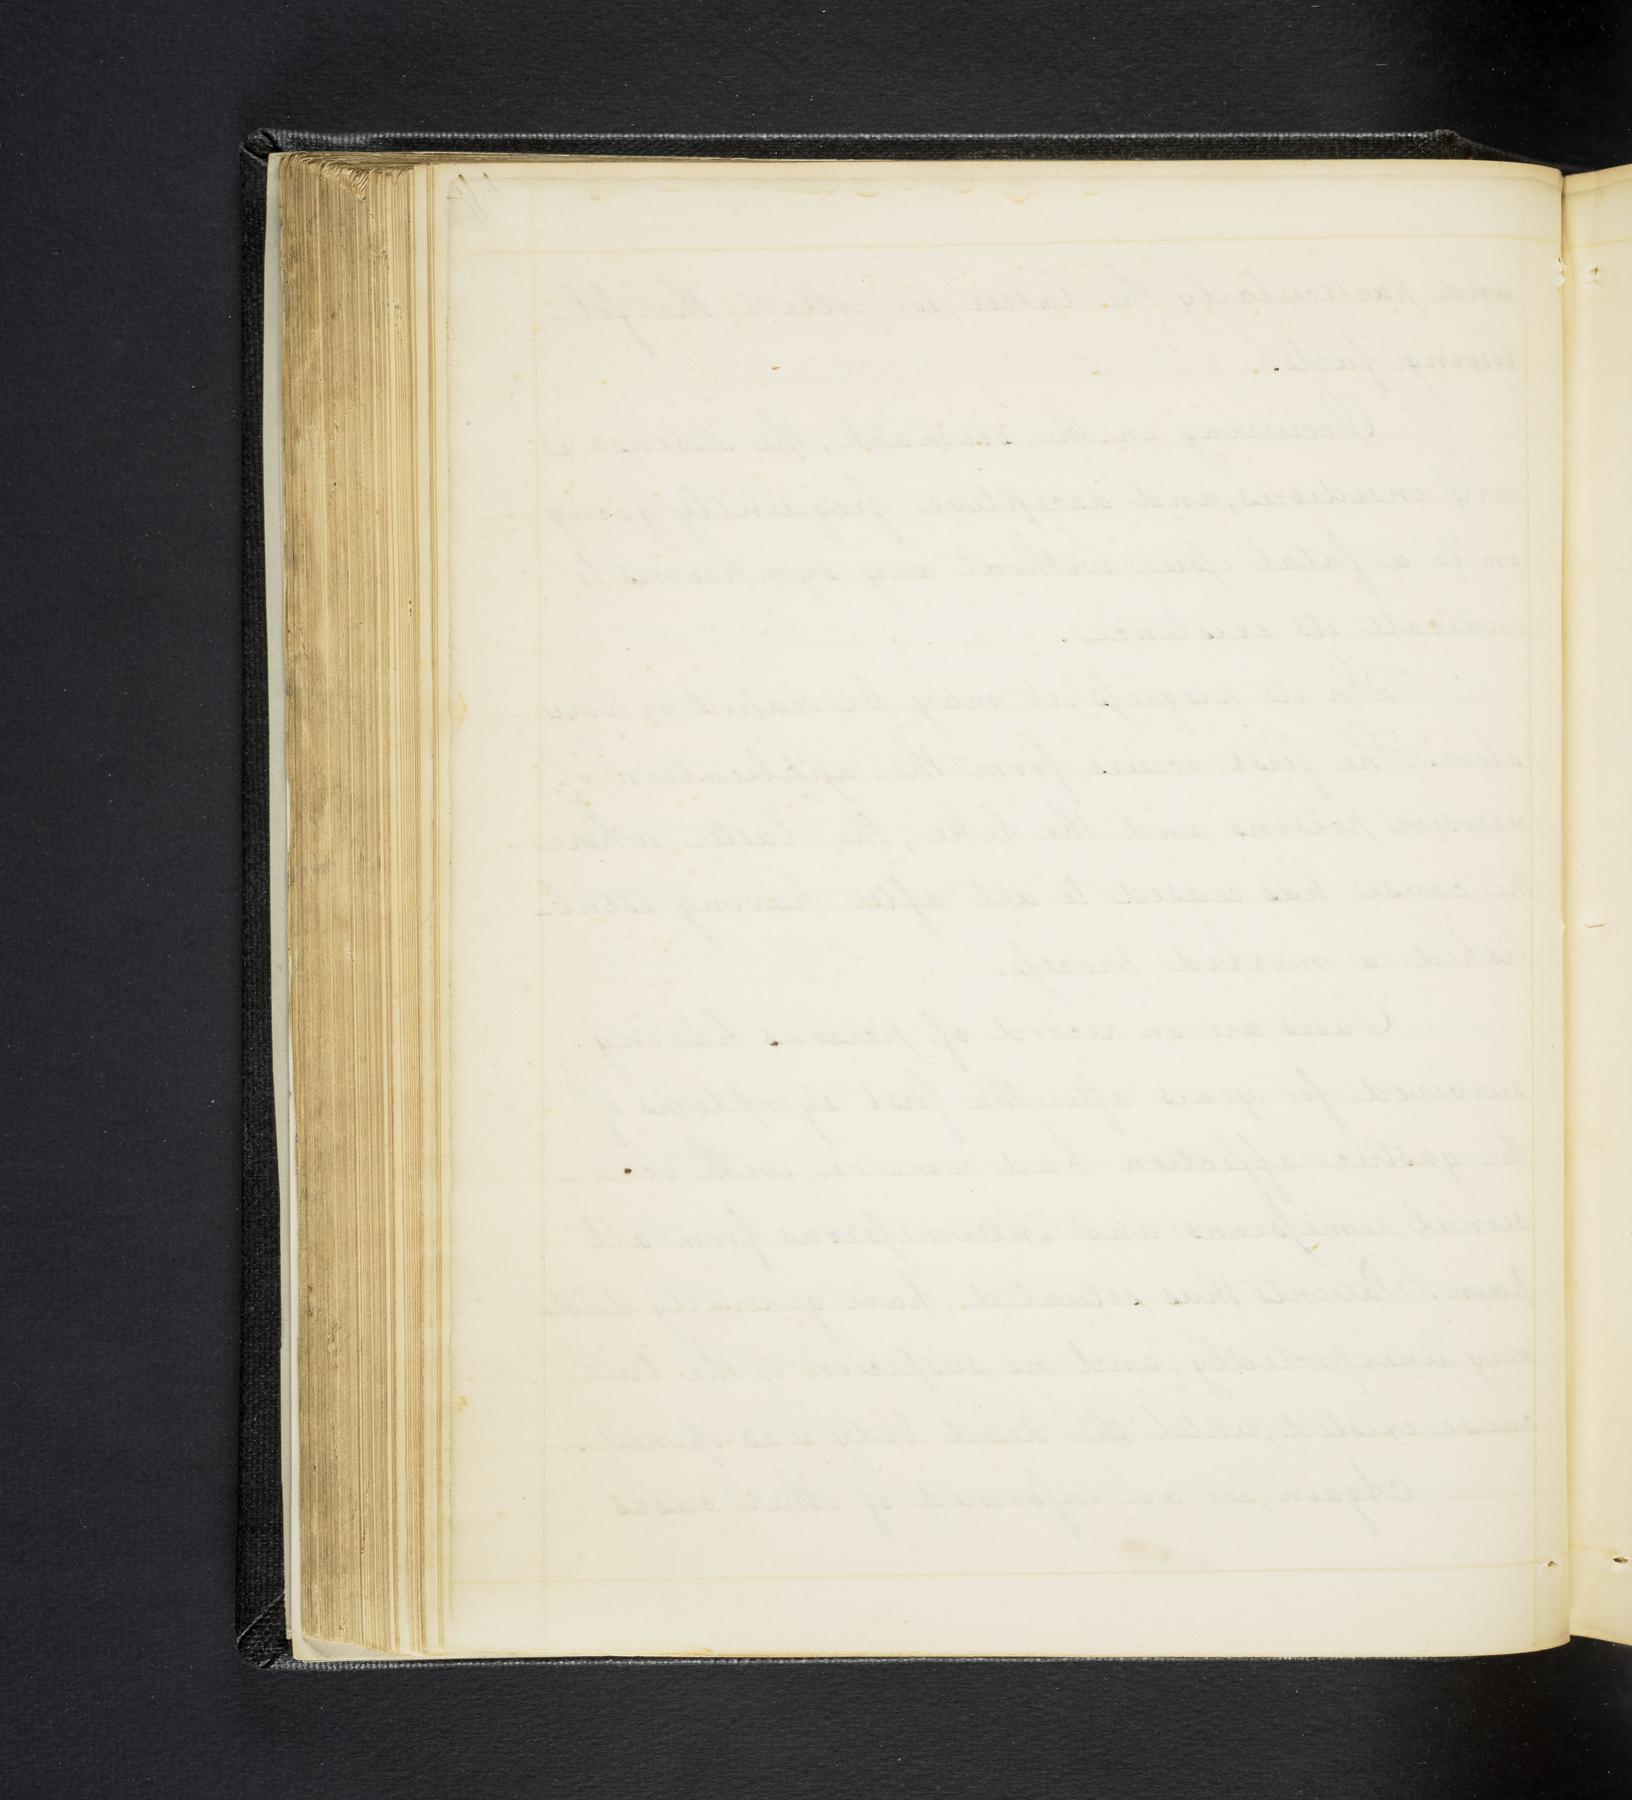 and particularly the latter, we collect the fol-
lowing facts.
Occurring in the stomach, the disease is
very insidious, and deceptive, frequently going
on to a fatal issue without any symptoms to
indicate its existence.
In its progress, it may be rapid or very
slow. The first occurs from the application of
corrosive poisons and the like; the latter where
the cause has ceased to act after having estab-
lished a morbid process.
Cases are on record of persons having
survived for years after the first symptoms of
the gastric affection had come on, with occa-
sional remissions and intermissions from all
pain. Patients thus situated, have generally died
very unexpectedly, and no suspicion of the true
cause existed, until the dead body was opened.
Again, we are informed of other cases